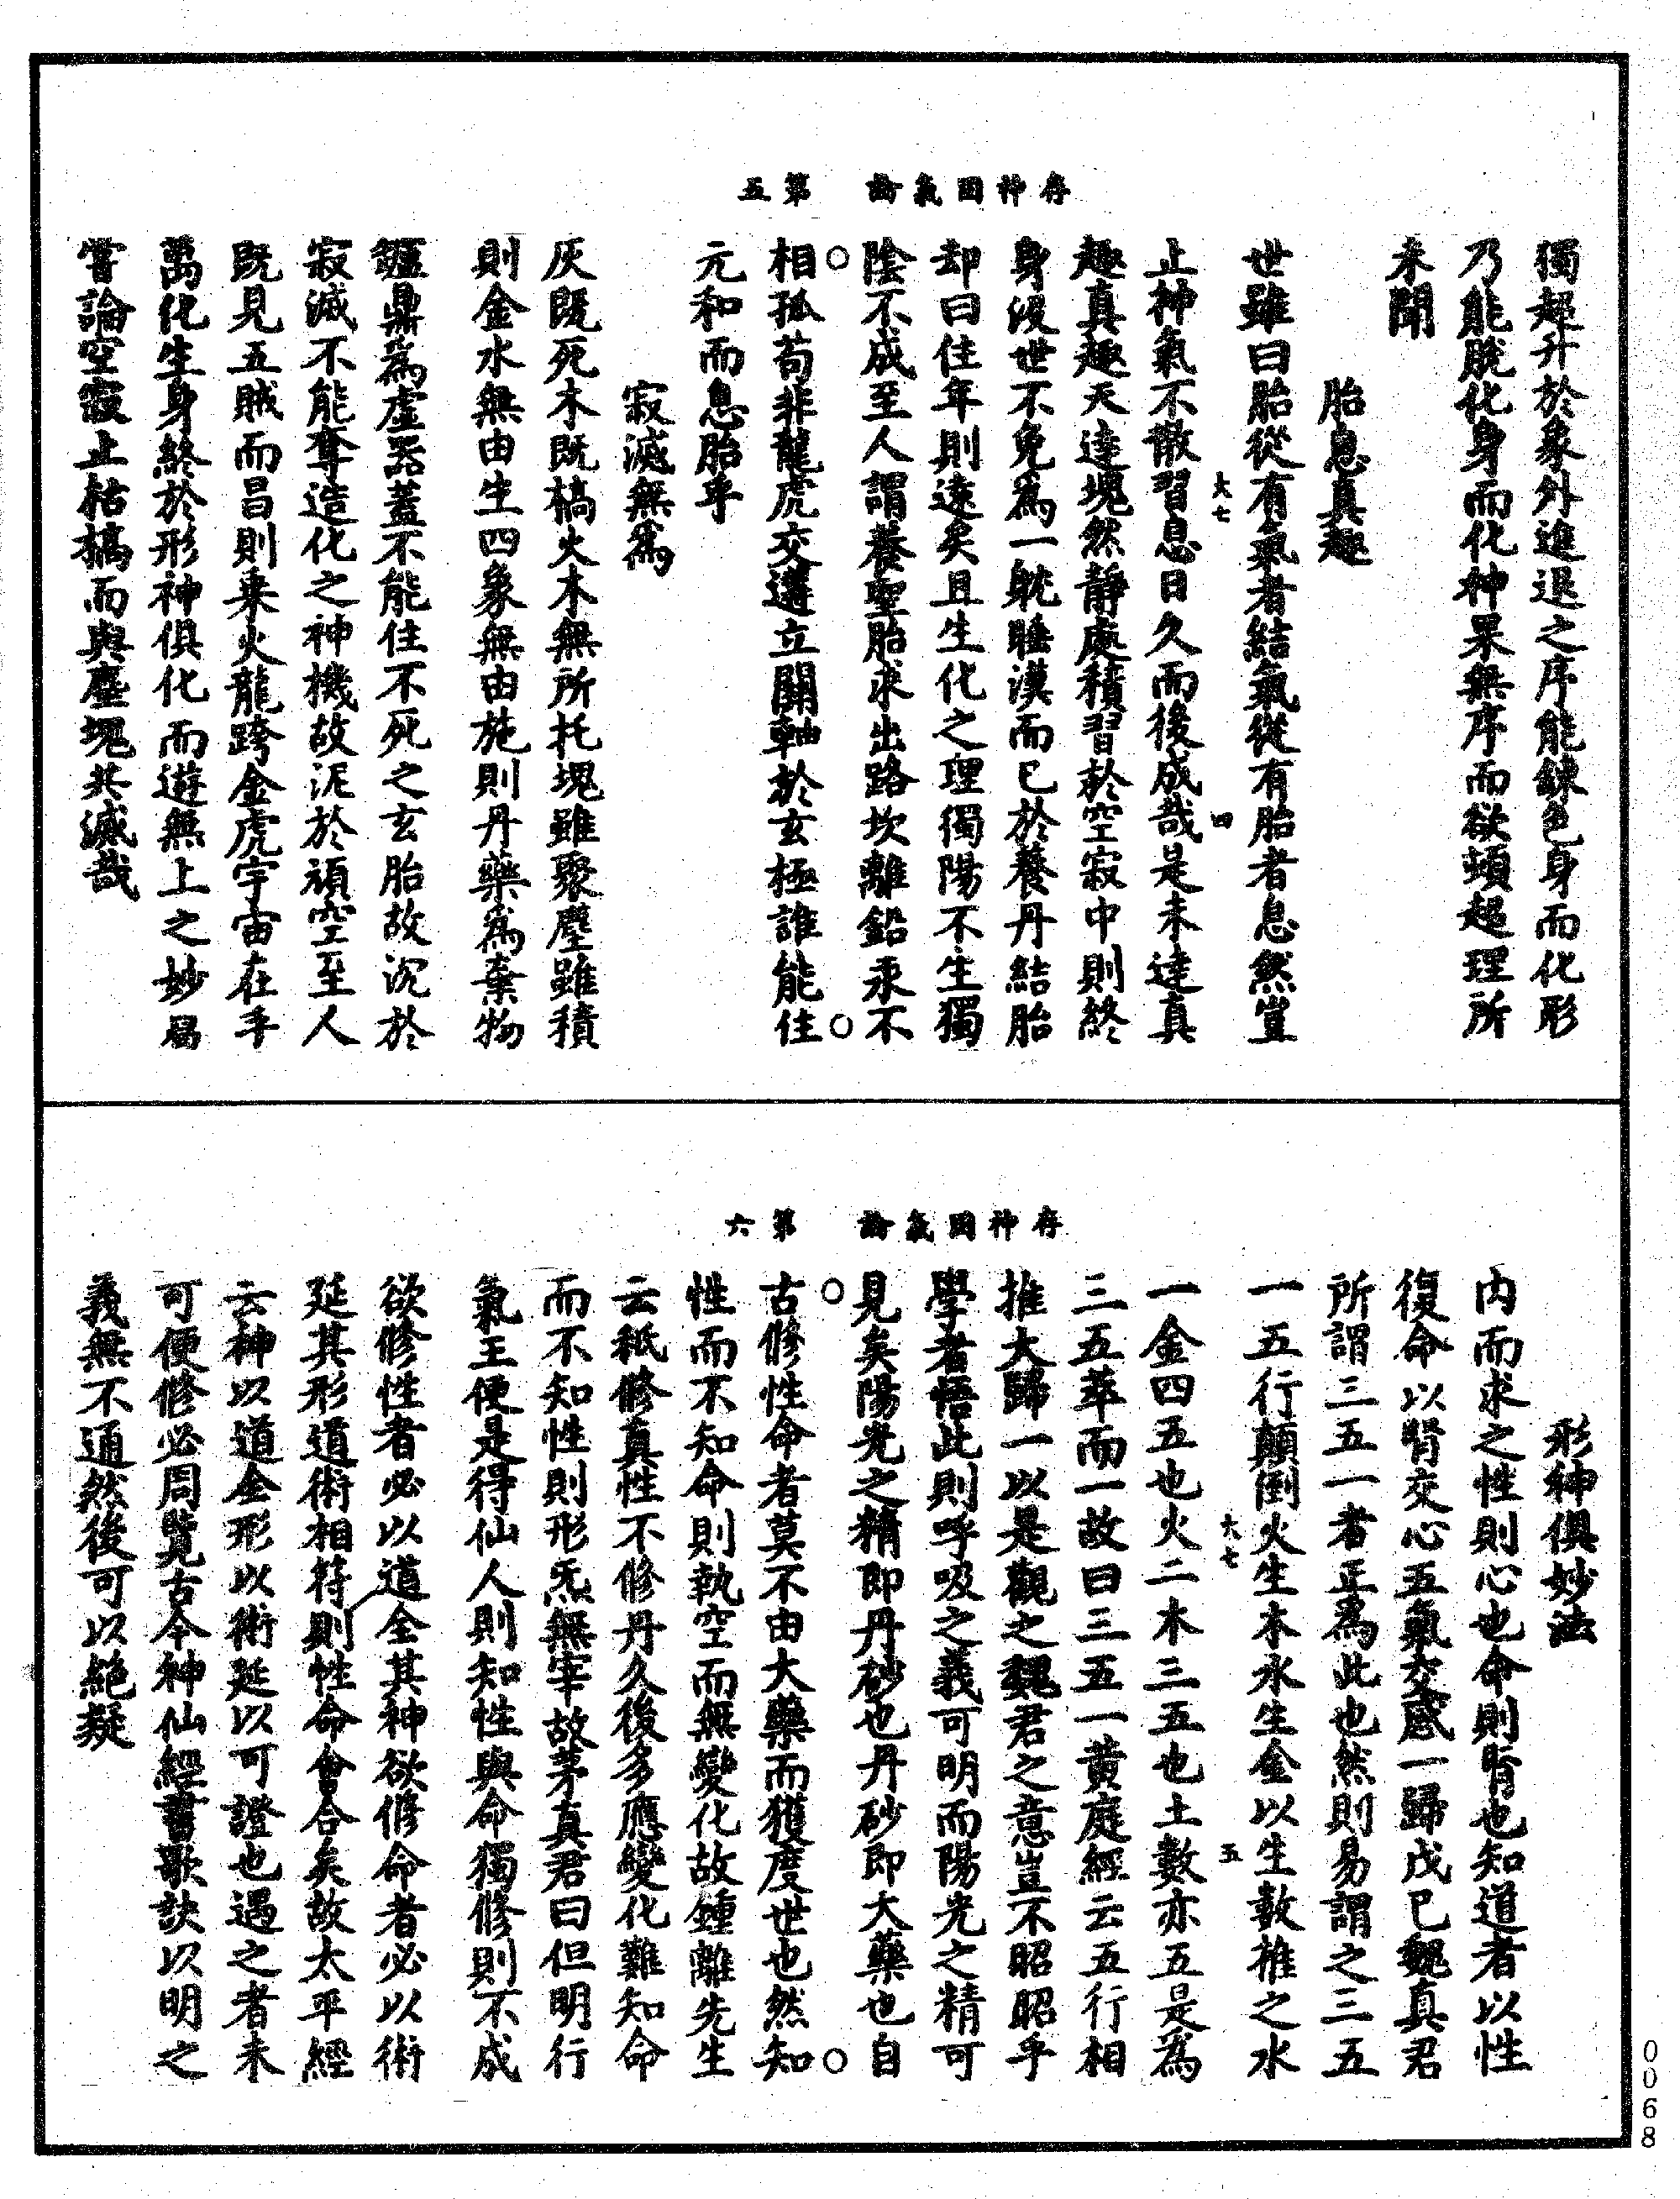 存神固氣論　第五
獨超升於象外進退之序能鍊色身而化形
乃能脫化身而化神果無序而欲頓超理所
未聞
胎息真趣
世雖曰胎從有氣者結氣從有胎者息然豈
大七　四
止神氣不散習息日久而後成哉是未達真
趣真趣天達塊然靜處積習於空寂中則終
身沒世不免為一躭睡漢而已於養丹結胎
却曰住年則遠矣且生化之理獨陽不生獨
陰不成至人謂養聖胎求出路坎離鉛汞不
相孤苟非龍虎交遘立關軸於玄極誰能住
元和而息胎乎
寂滅無為
灰既死木既槁火木無所托塊雖聚塵雖積
則金水無由生四象無由施則丹藥為棄物
鑪鼎為虛器蓋不能住不死之玄胎故沉於
寂滅不能奪造化之神機故泥於頑空至人
既見五賊而昌則乗火龍跨金虎宇宙在乎
萬化生身終於形神俱化而遊無上之妙曷
嘗論空寂止枯槁而與塵塊共滅哉
存神固氣論　第六
形神俱妙法
内而求之性則心也命則腎也知道者以性
復命以腎交心五氣交感一歸戊巳魏真君
所謂三五一者正為此也然則易謂之三五
一五行顛倒火生木水生金以生數推之水
大七　五
一金四五也火二木三五也土數亦五是為
三五萃而一故曰三五一黃庭經云五行相
推大歸一以是觀之魏君之意豈不昭昭乎
學者悟此則呼吸之義可明而陽光之精可
見矣陽光之精即丹砂也丹砂即大藥也自
古修性命者莫不由大藥而獲度世也然知
性而不知命則執空而無變化故鍾離先生
云秪修真性不修丹久後多應變化難知命
而不知性則形炁無宰故茅真君曰但明行
氣主便是得仙人則知性與命獨修則不成
欲修性者必以道全其神欲修命者必以術
延其形道術相符則性命會合矣故太平經
云神以道全形以術延以可證也遇之者未
可便修必周覽古今神仙經書歌訣以明之
義無不通然後可以絕疑
0068